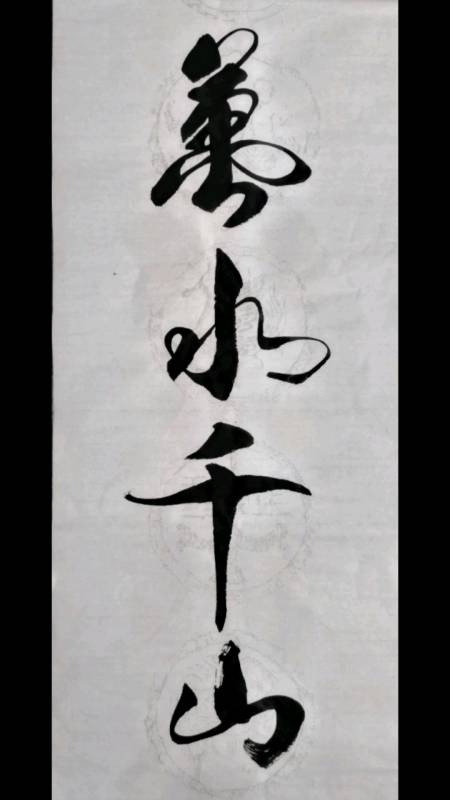 萬水千山